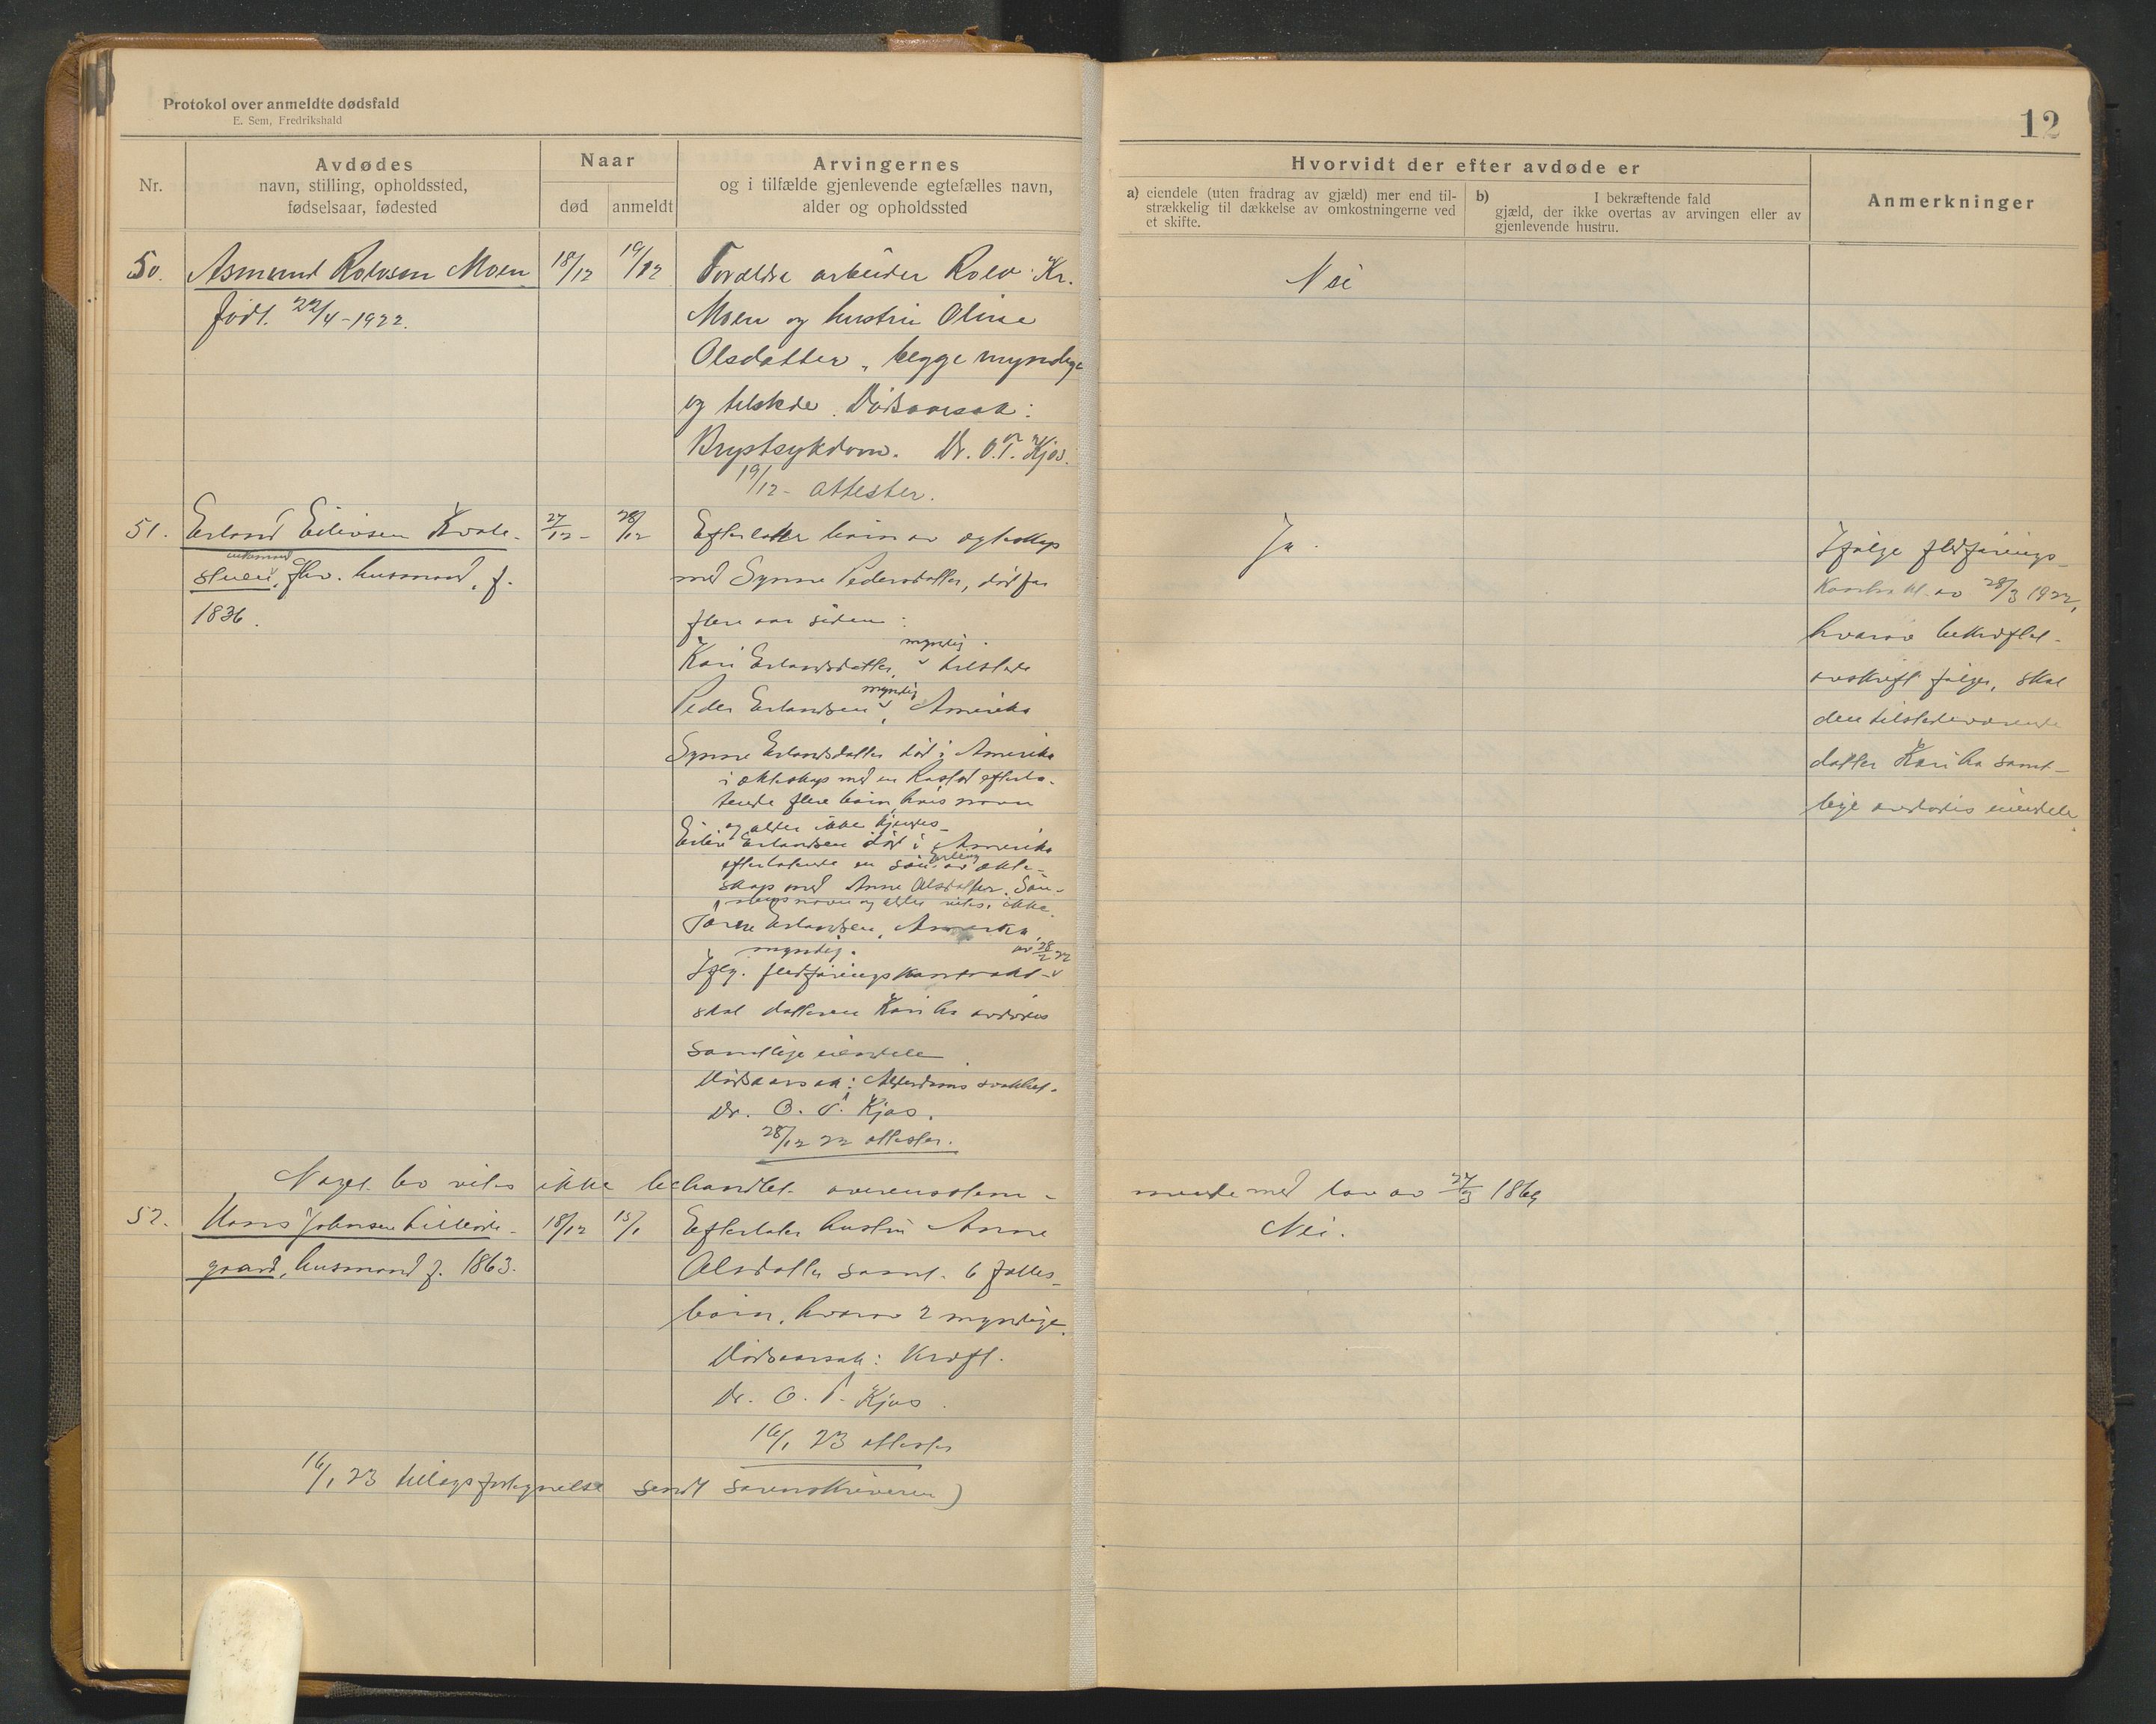 Protokol over anmeldte dødsfald
E. Sem, Fredrikshald
12
Nr.
Avdødes
navn, stilling, opholdssted,
fødselsaar, fødested
Naar
død
anmeldt
Arvingernes
og i tilfælde gjenlevende egtefælles navn,
alder og opholdssted
Hvorvidt der efter avdøde er
a) eiendele (uten fradrag av gjæld) mer end til-
strækkelig til dækkelse av omkostningerne ved
et skifte.
b) I bekræftende fald
gjæld, der ikke overtas av arvingen eller av
gjenlevende hustru.
Anmerkninger
50. Asmund Rolvsen Moen
født 22/4-1922.
18/12
19/12
Forældre arbeider Rolv Kr.
Moen og hustru Oline
Olsdatter, begge myndige
og tilstede. Dødsaarsak:
Brystsykdom. Dr. O. T. Kjos.
19/12- attester.
Nei
51. Erland Eilivsen Kvale-
stuen, fhv. husmand, f.
1836.
27/12-
28/12
Efterlatte barn av egteskap
med Synne Pedersdatter, død for
flere aar siden:
Kari Erlandsdatter, myndig. tilstede
Peder Erlandsen myndig, Amerika
Synne Erlandsdatter død i Amerika
i ekteskap med en efterla-
tende flere barn, hvis navn
og alder ikke kjendes
Eiliv Erlandsen død i Amerika
efterlatende en søn av ekte-
skap med Anne Olsdatter. Søn-
nens navn og alder vites ikke.
Erlandsen, Amerika,
myndig.
Ifølg. fledføringskontrakt av 28/2 22
skal datteren Kari ha avdødes
samtlige eiendele
Dødsaarsak: Alderdoms svakhet.
Dr. O. T. Kjos.
28/12 22 attester.
Ja.
Ifølge fledførings-
kontrakt av 28/3 1922,
hvorav bekræftet
avskrift følger, skal
den tilstedeværende
datter Kari ha samt-
lige avdødes eiendele.
Noget bo vites ikke behandlet overensstem-
mende med lov av 27/3 1869
52. Hans Johnsen
gaard, husmand f. 1863.
18/12
15/1
Efterlater hustru Anne
Olsdatter samt 6 fælles-
barn, hvorav 2 myndige.
Dødsaarsak: Kræft.
Dr. O. T. Kjos.
16/1 23 attester
Nei.
16/1 23 tillægsfortegnelse sendt sorenskriveren)